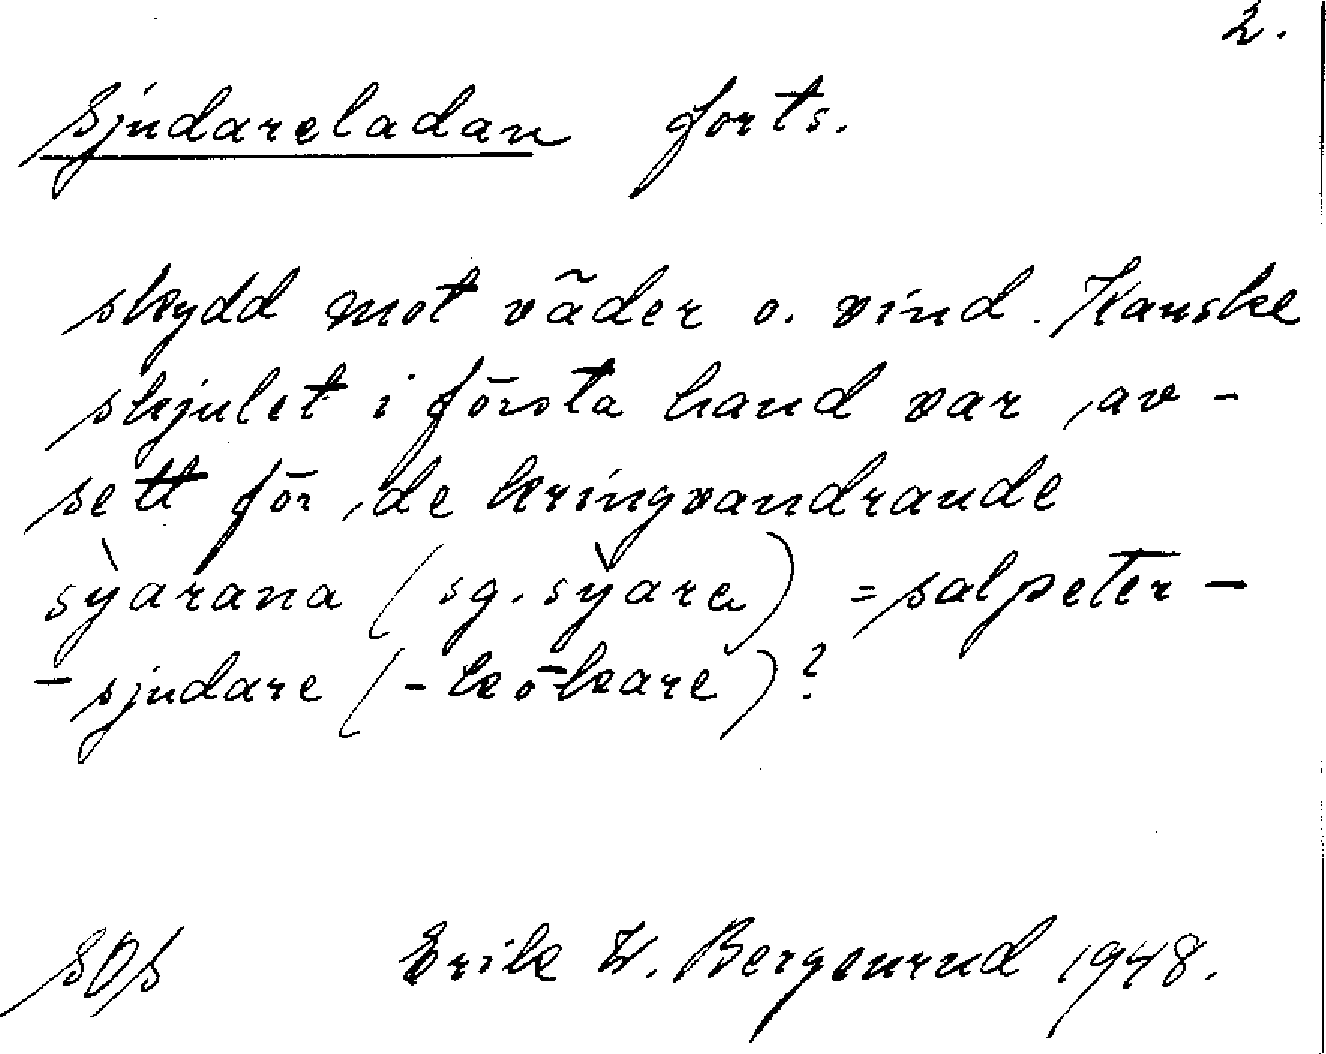 2.
Sjudareladan forts.
skydd mot väder o. vind. Kanske
skjulet i första hand var av-
sett för de kringvandrande
sỳarana (sg. sy̌are) = salpeter-
-sjudare (-kokare)?
SOS Erik W. 1948.